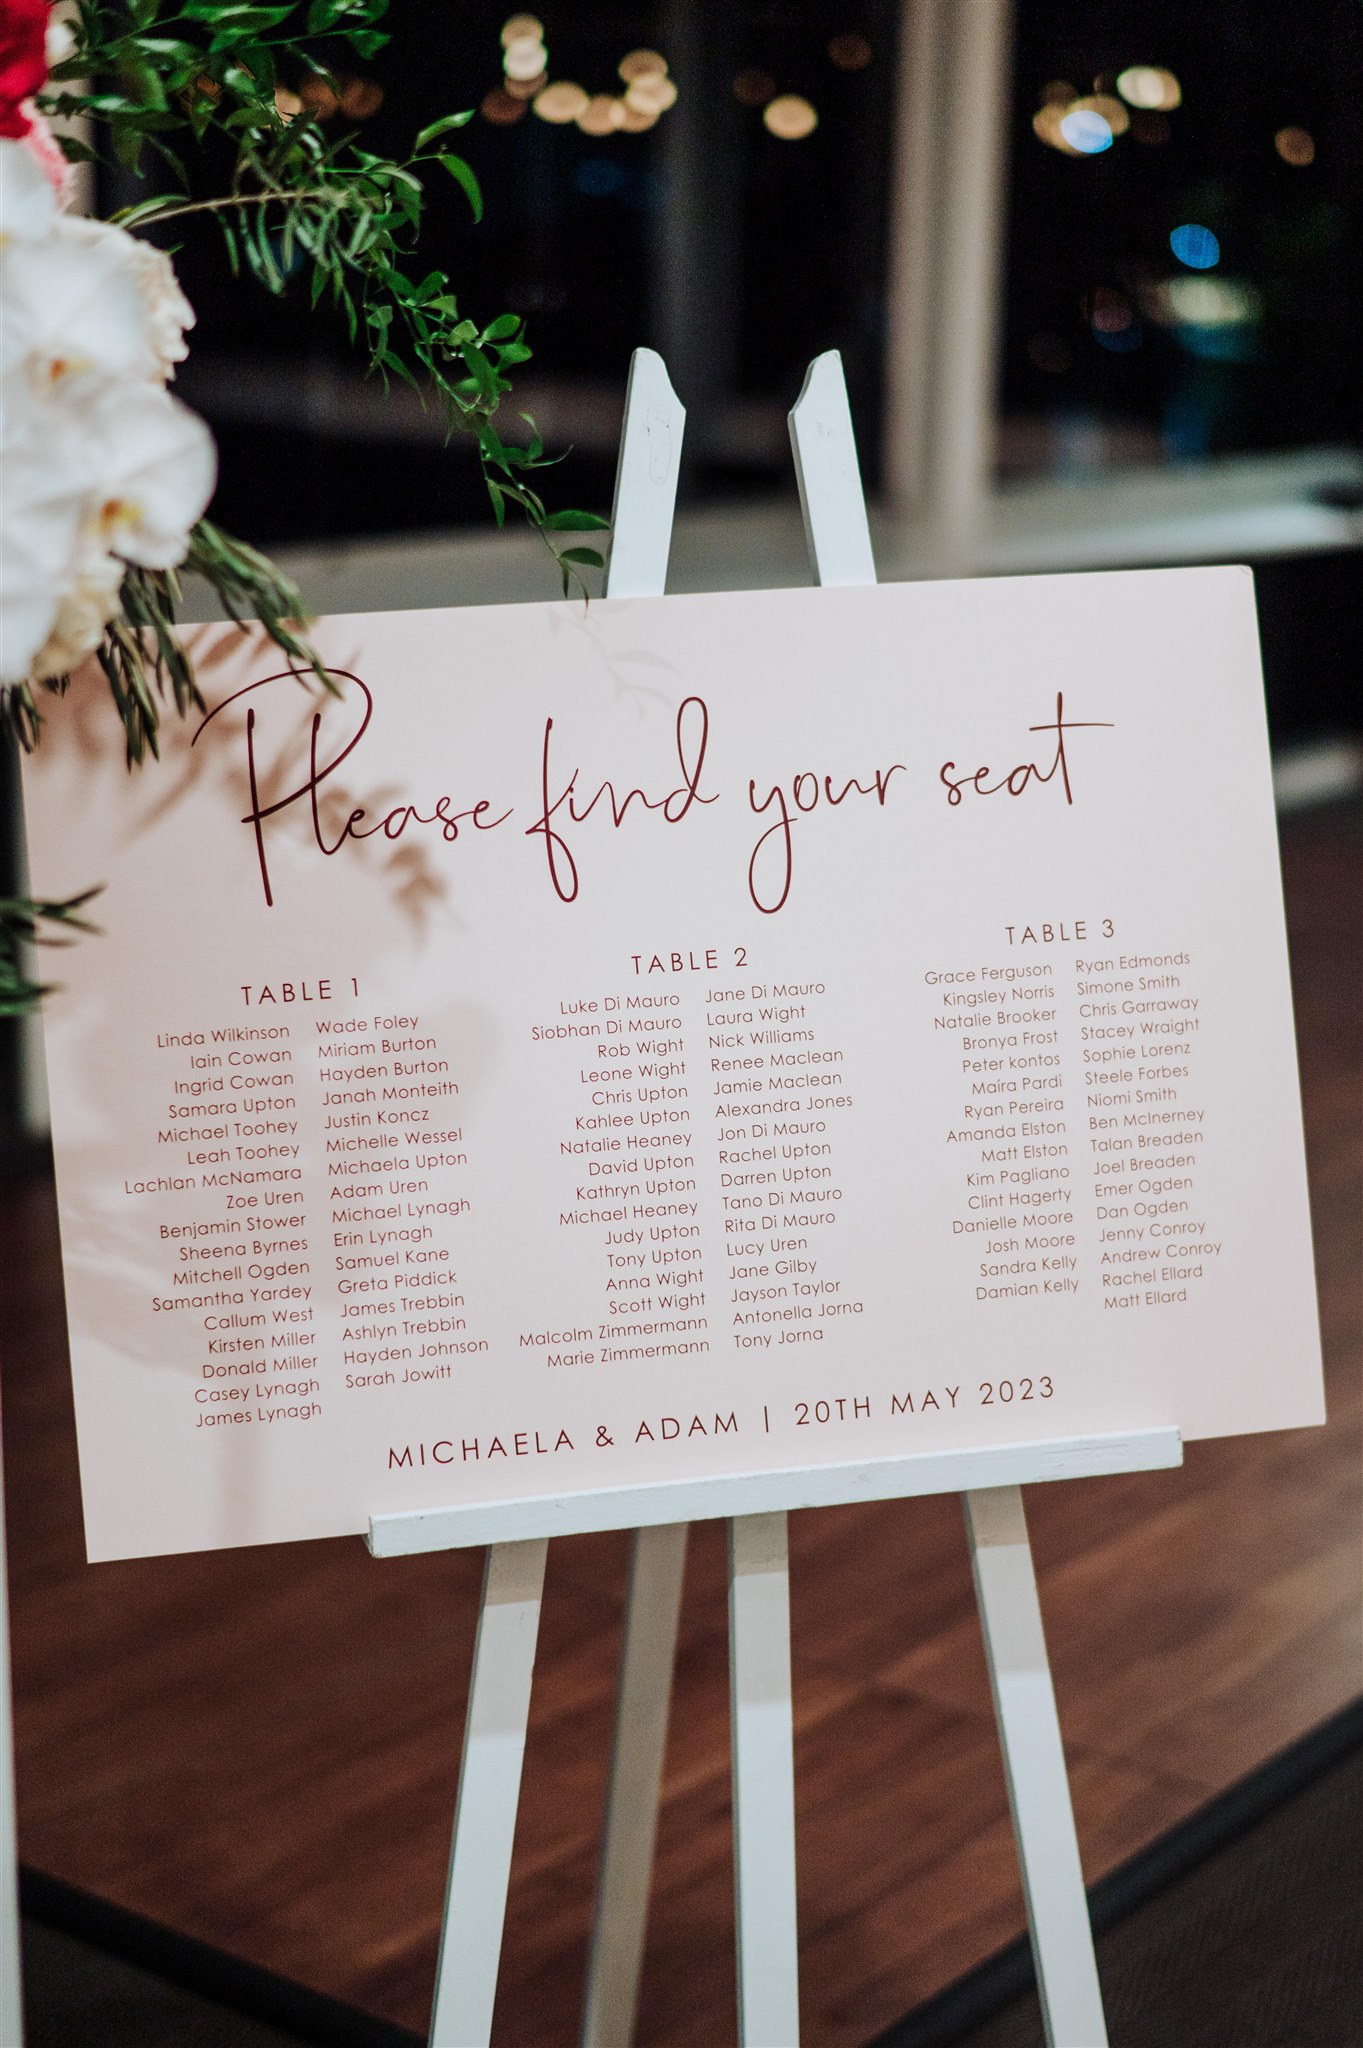 Please find your seat
TABLE 1
Linda Wilkinson
Iain Cowan
Ingrid Cowan
Samara Upton
Michael Toohey
Leah Toohey
Lachlan McNamara
Zoe Uren
Benjamin Stower
Sheena Byrnes
Mitchell Ogden
Samantha Yardey
Callum West
Kirsten Miller
Donald Miller
Casey Lynagh
James Lynagh
Wade Foley
Miriam Burton
Hayden Burton
Janah Monteith
Justin Koncz
Michelle Wessel
Michaela Upton
Adam Uren
Michael Lynagh
Erin Lynagh
Samuel Kane
Greta Piddick
James Trebbin
Ashlyn Trebbin
Hayden Johnson
Sarah Jowitt
TABLE 2
Luke Di Mauro
Siobhan Di Mauro
Rob Wight
Leone Wight
Chris Upton
Kahlee Upton
Natalie Heaney
David Upton
Kathryn Upton
Michael Heaney
Judy Upton
Tony Upton
Anna Wight
Scott Wight
Malcolm Zimmermann
Marie Zimmermann
Jane Di Mauro
Laura Wight
Nick Williams
Renee Maclean
Jamie Maclean
Alexandra Jones
Jon Di Mauro
Rachel Upton
Darren Upton
Tano Di Mauro
Rita Di Mauro
Lucy Uren
Jane Gilby
Jayson Taylor
Antonella Jorna
Tony Jorna
TABLE 3
Grace Ferguson
Kingsley Norris
Natalie Brooker
Bronya Frost
Peter kontos
Maíra Pardi
Ryan Pereira
Amanda Elston
Matt Elston
Kim Pagliano
Clint Hagerty
Danielle Moore
Josh Moore
Sandra Kelly
Damian Kelly
Ryan Edmonds
Simone Smith
Chris Garraway
Stacey Wraight
Sophie Lorenz
Steele Forbes
Niomi Smith
Ben McInerney
Talan Breaden
Joel Breaden
Emer Ogden
Dan Ogden
Jenny Conroy
Andrew Conroy
Rachel Ellard
Matt Ellard
MICHAELA & ADAM | 20TH MAY 2023